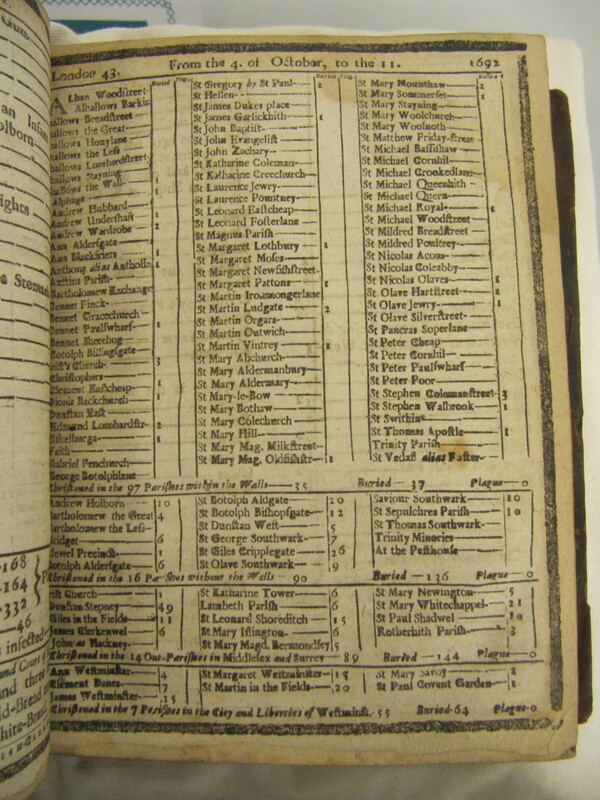 London 43. From the 4. of October, to the 11. 1692
Buried Plag.
Alban Woodstreet
Alhallows Barkin
allows Breadstreet
allows the Great
allows Honylane
allows the Less
allows Lombardstreet
allows Stayning
allows the Wall 1
Alphage 1
Andrew Hubbard
Andrew Undershaft 1
Andrew Wardrobe 2
Ann Aldersgate
Ann Blackfriers 1
Anthony alias Antholin 1
Austins Parish
Bartholomew Exchange
Bennet Finck
Bennet Gracechurch
Bennet Paulswharf 1
Bennet Sherehog
Botolph Billingsgate
rist's Church 3
Christophers
Clement Eastcheap 1
Dionis Backchurch 1
Dunstan East
Edmund Lombardstr. 2
Ethelburga 1
Faith
Gabriel Fenchurch
George Botolphlane
Buried Plag.
St Gregory by St Paul 2
St Hellen
St James Dukes place
St James Garlickhith 1
St John Baptist
St John Evangelist
St John Zachary
St Katharine Coleman
St Katharine Creechurch
St Laurence Jewry
St Laurence Pountney
St Leonard Eastcheap
St Leonard Fosterlane
St Magnus Parish
St Margaret Lothbury 1
St Margaret Moses
St Margaret Newfishstreet
St Margaret Pattons 1
St Martin Ironmongerlane
St Martin Ludgate 2
St Martin Orgars
St Martin Outwich
St Martin Vintrey 1
St Mary Abchurch
St Mary Aldermanbury
St Mary Aldermary
St Mary-le-Bow
St Mary Bothaw
St Mary Colechurch
St Mary Hill
St Mary Mag. Milkstreet
St Mary Mag. Oldfishstr 1
St Mary Mounthaw 2
St Mary Sommerset 1
St Mary Stayning
St Mary Woolchurch
St Mary Woolnoth
St Matthew Friday-street
St Michael Bassishaw
St Michael Cornhil
St Michael Crookedlane
St Michael Queenhith
St Michael Quern
St Michael Royal 1
St Michael Woodstreet
St Mildred Breadstreet
St Mildred Poultrey
St Nicolas Acons
St Nicolas Coleabby
St Nicolas Olaves 1
St Olave Hartstreet 2
St Olave Jewry 1
St Olave Silverstreet
St Pancras Soperlane
St Peter Cheap
St Peter Cornhil
St Peter Paulswharf
St Peter Poor
St Stephen Colemanstreet 3
St Stephen Walbrook 1
St Swithins
St Thomas Apostle 1
Trinity Parish
St Vedast alias Foster
Christened in the 97 Parishes within the Walls — 35 Buried — 37 Plague — 0
Andrew Holborn 20
Bartholomew the Great 4
Bartholomew the Less
Bridget 6
Bridewel Precinct 1
Botolph Aldersgate 6
St Botolph Aldgate 20
St Botolph Bishopsgate 12
St Dunstan West 5
St George Southwark 7
St Giles Cripplegate 26
St Olave Southwark 9
Saviour Southwark 10
St Sepulchres Parish 10
St Thomas Southwark
Trinity Minories
At the Pesthouse
Christened in the 16 Parishes without the Walls — 90 Buried — 136 Plague — 0
rist Church 1
Dunstan Stepney 49
Giles in the Fields 11
James Clerkenwel 6
John at Hackney
St Katharine Tower 6
Lambeth Parish 6
St Leonard Shoreditch 15
St Mary Islington 6
St Mary Magd. Bermondsey 5
St Mary Newington 5
St Mary Whitechappel 21
St Paul Shadwel
Rotherhith Parish 3
Christened in the 14 Out-Parishes in Middlesex and Surrey — 89 Buried — 144 Plague — 0
Ann Westminster 4
Clement Danes 7
James Westminster 15
St Margaret Westminster 15
St Martin in the Fields 20
St Mary Savoy 2
St Paul Covent Garden 1
Christened in the 7 Parishes in the City and Liberties of Westminst. 55 Buried 64 Plague 0
168
164
332
46